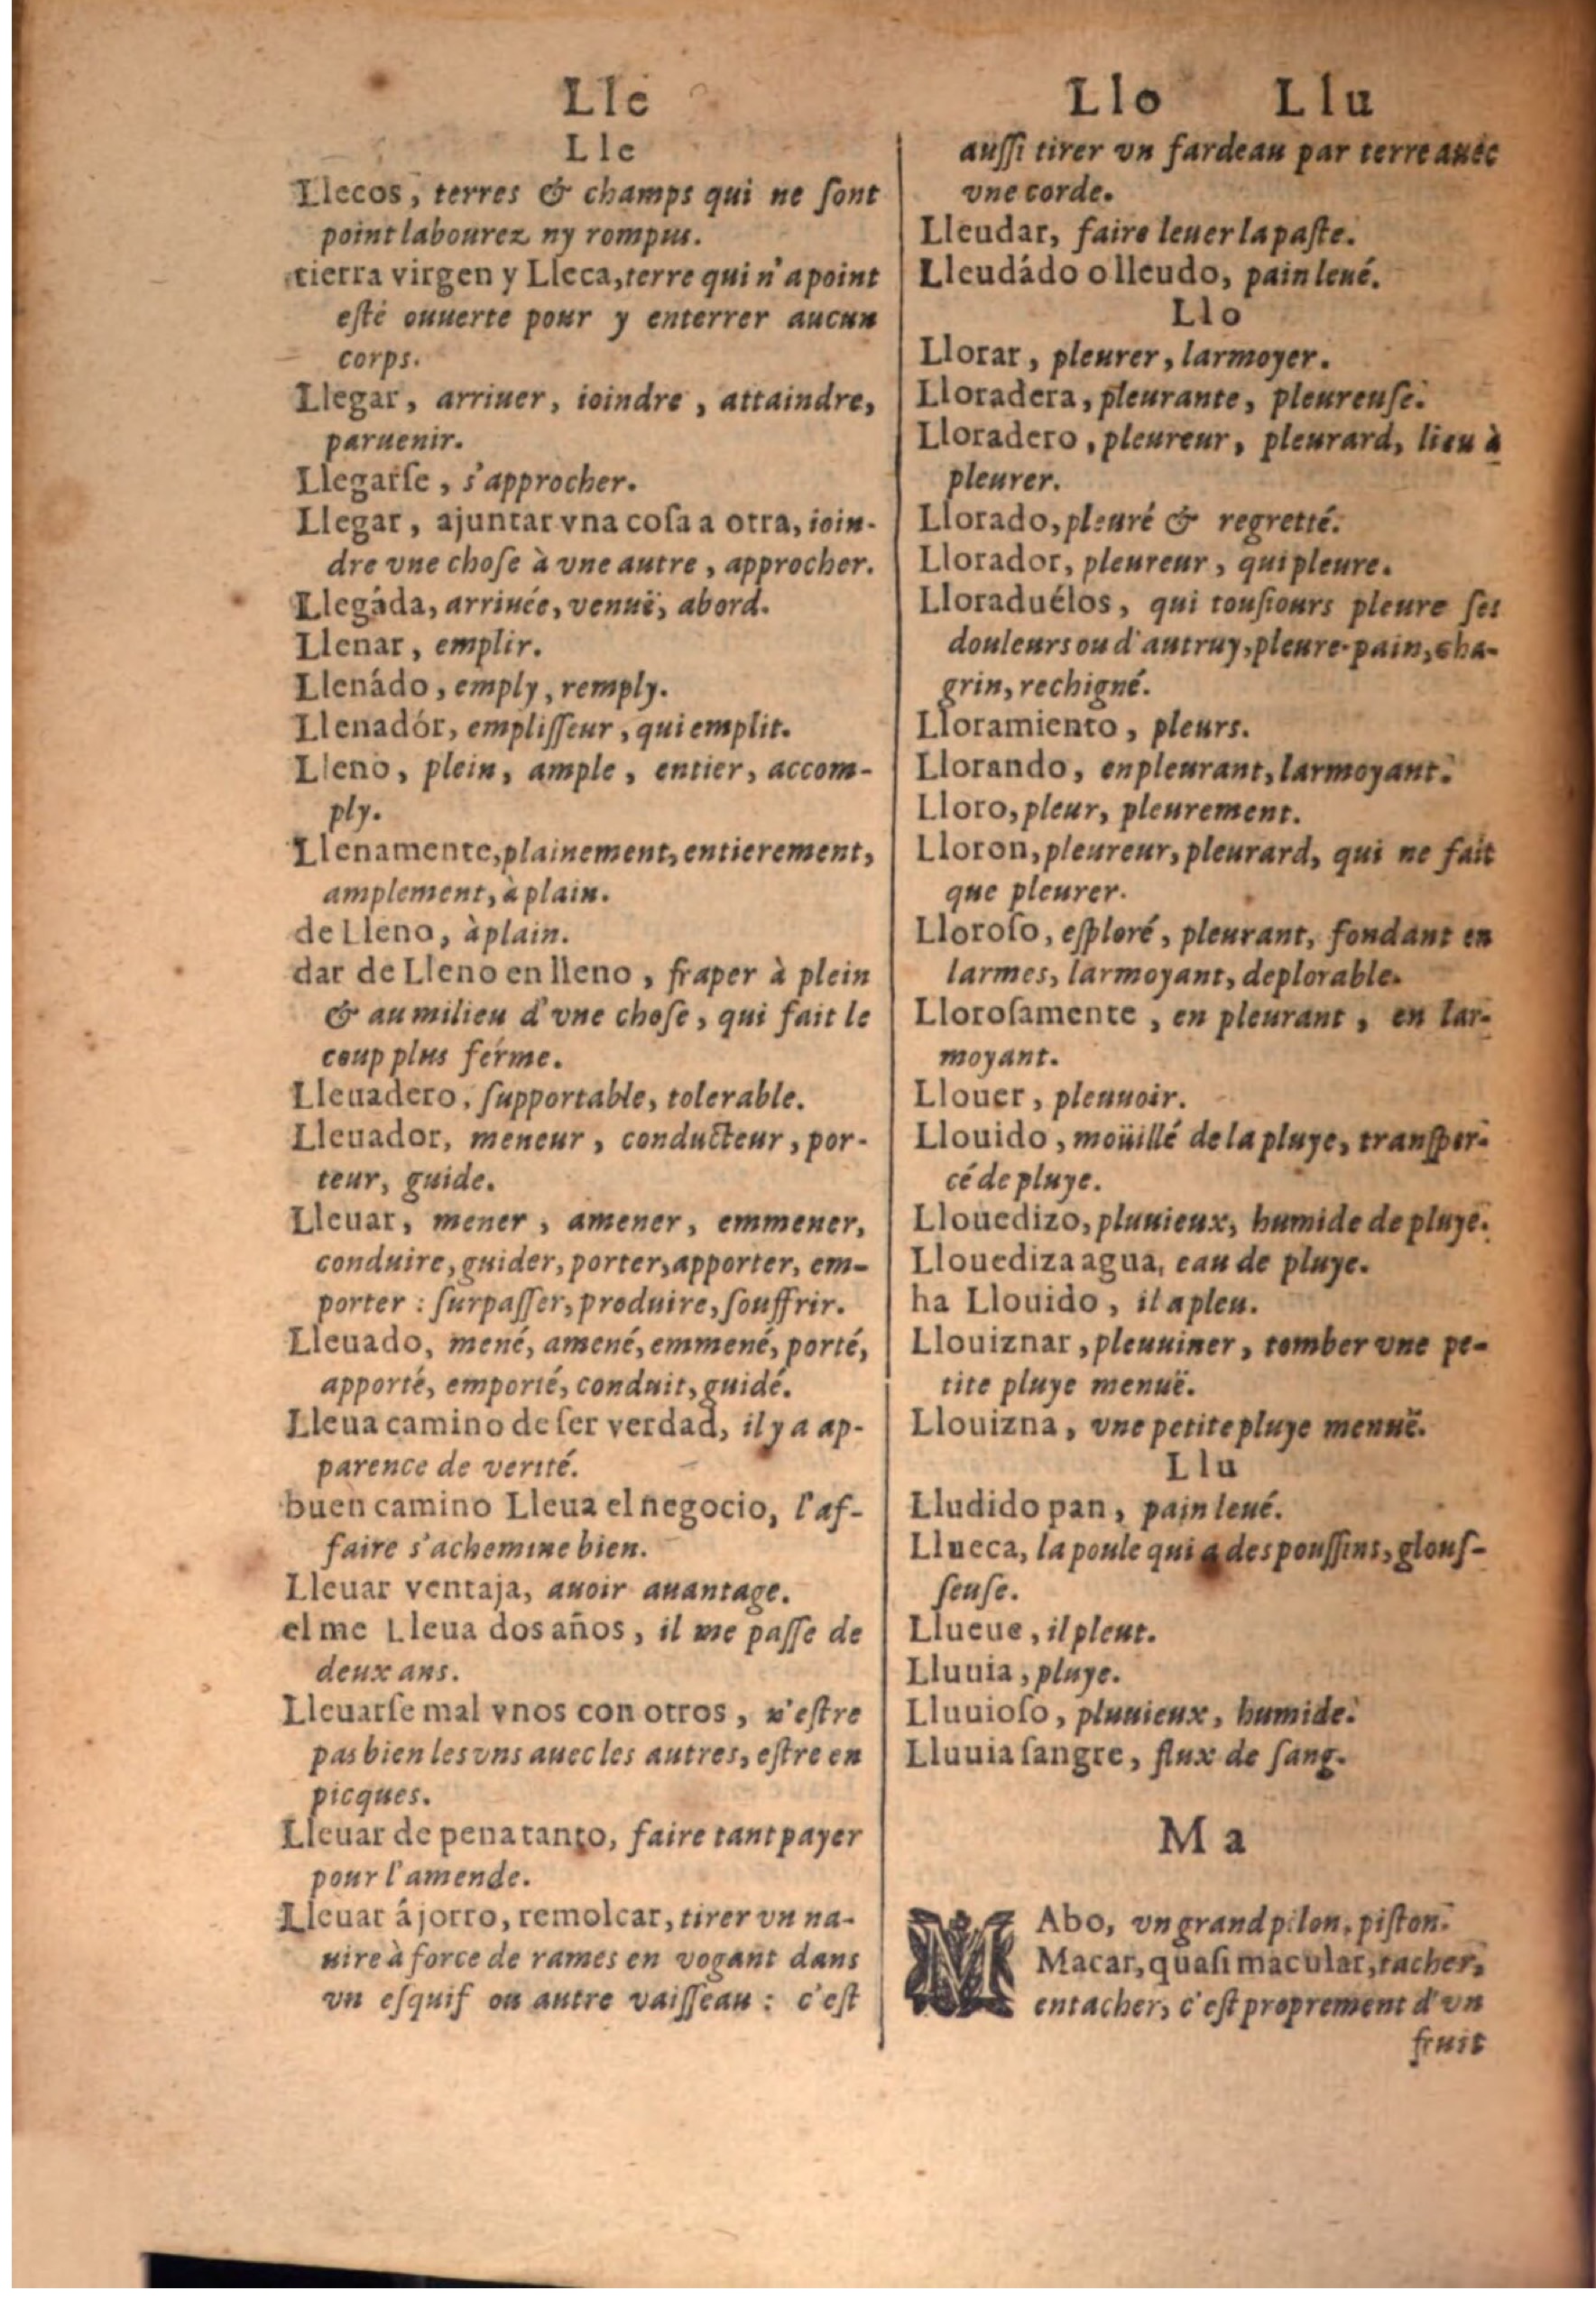 Lle
Lle
Llecos, terres & champs qui ne ſont
point labourez ny rompus.
tierra virgen y Lleca, terre qui n'a point
eſté ouuerte pour y enterrer aucun
corps.
Llegar, arriuer, ioindre, attaindre,
paruenir.
Llegarſe, s'approcher.
Llegar, ajuntar vna coſa a otra, ioin-
dre vne choſe à vne autre, approcher.
Llegáda, arriuée, venuë, abord.
Llenar, emplir.
Llenádo, emply, remply.
Llenadór, empliſſeur, qui emplit.
Lleno, plein, ample, entier, accom-
ply.
Llenamente, plainement, entierement,
amplement, à plain.
de Lleno, à plain.
dar de Lleno en lleno, fraper à plein
& au milieu d'vne choſe, qui fait le
coup plus ferme.
Lleuadero, ſupportable, tolerable.
Lleuador, meneur, conducteur, por-
teur, guide.
Lleuar, mener, amener, emmener,
conduire, guider, porter, apporter, em-
porter : ſurpaſſer, produire, ſouffrir.
Lleuado, mené, amené, emmené, porté,
apporté, emporté, conduit, guidé.
Lleua camino de ſer verdad, il y a ap-
parence de verité.
buen camino Lleua el negocio, l'af-
faire s'achemine bien.
Lleuar ventaja, auoir auantage.
el me Lleua dos años, il me paſſe de
deux ans.
Lleuarſe mal vnos con otros, n'eſtre
pas bien les vns auec les autres, eſtre en
picques.
Lleuar de pena tanto, faire tant payer
pour l'amende.
Lleuar á jorro, remolcar, tirer vn na-
uire à force de rames en vogant dans
vn eſquif ou autre vaiſſeau : c'eſt
Llo Llu
auſſi tirer vn fardeau par terre auec
vne corde.
Lleudar, faire leuer la paſte.
Lleudádo o lleudo, pain leué.
Llo
Llorar, pleurer, larmoyer.
Lloradera, pleurante, pleureuſe.
Lloradero, pleureur, pleurard, lieu à
pleurer.
Llorado, pleuré & regretté.
Llorador, pleureur, qui pleure.
Lloraduélos, qui touſiours pleure ſes
douleurs ou d'autruy, pleure-pain, cha-
grin, rechigné.
Lloramiento, pleurs.
Llorando, en pleurant, larmoyant.
Lloro, pleur, pleurement.
Lloron, pleureur, pleurard, qui ne fait
que pleurer.
Lloroſo, eſploré, pleurant, fondant en
larmes, larmoyant, deplorable.
Lloroſamente, en pleurant, en lar-
moyant.
Llouer, pleuuoir.
Llouido, moüillé de la pluye, tranſper-
cé de pluye.
Llouedizo, pluuieux, humide de pluye.
Llouediza agua, eau de pluye.
ha Llouido, il a pleu.
Llouiznar, pleuuiner, tomber vne pe-
tite pluye menuë.
Llouizna, vne petite pluye menuë.
Llu
Lludido pan, pain leué.
Llueca, la poule qui a des pouſſins, glouſ-
ſeuſe.
Llueue, il pleut.
Lluuia, pluye.
Lluuioſo, pluuieux, humide.
Lluuia ſangre, flux de ſang.
Ma
MAbo, vn grand pilon, piſton.
Macar, quaſi macular, tacher,
entacher, c'eſt proprement d'vn
fruit